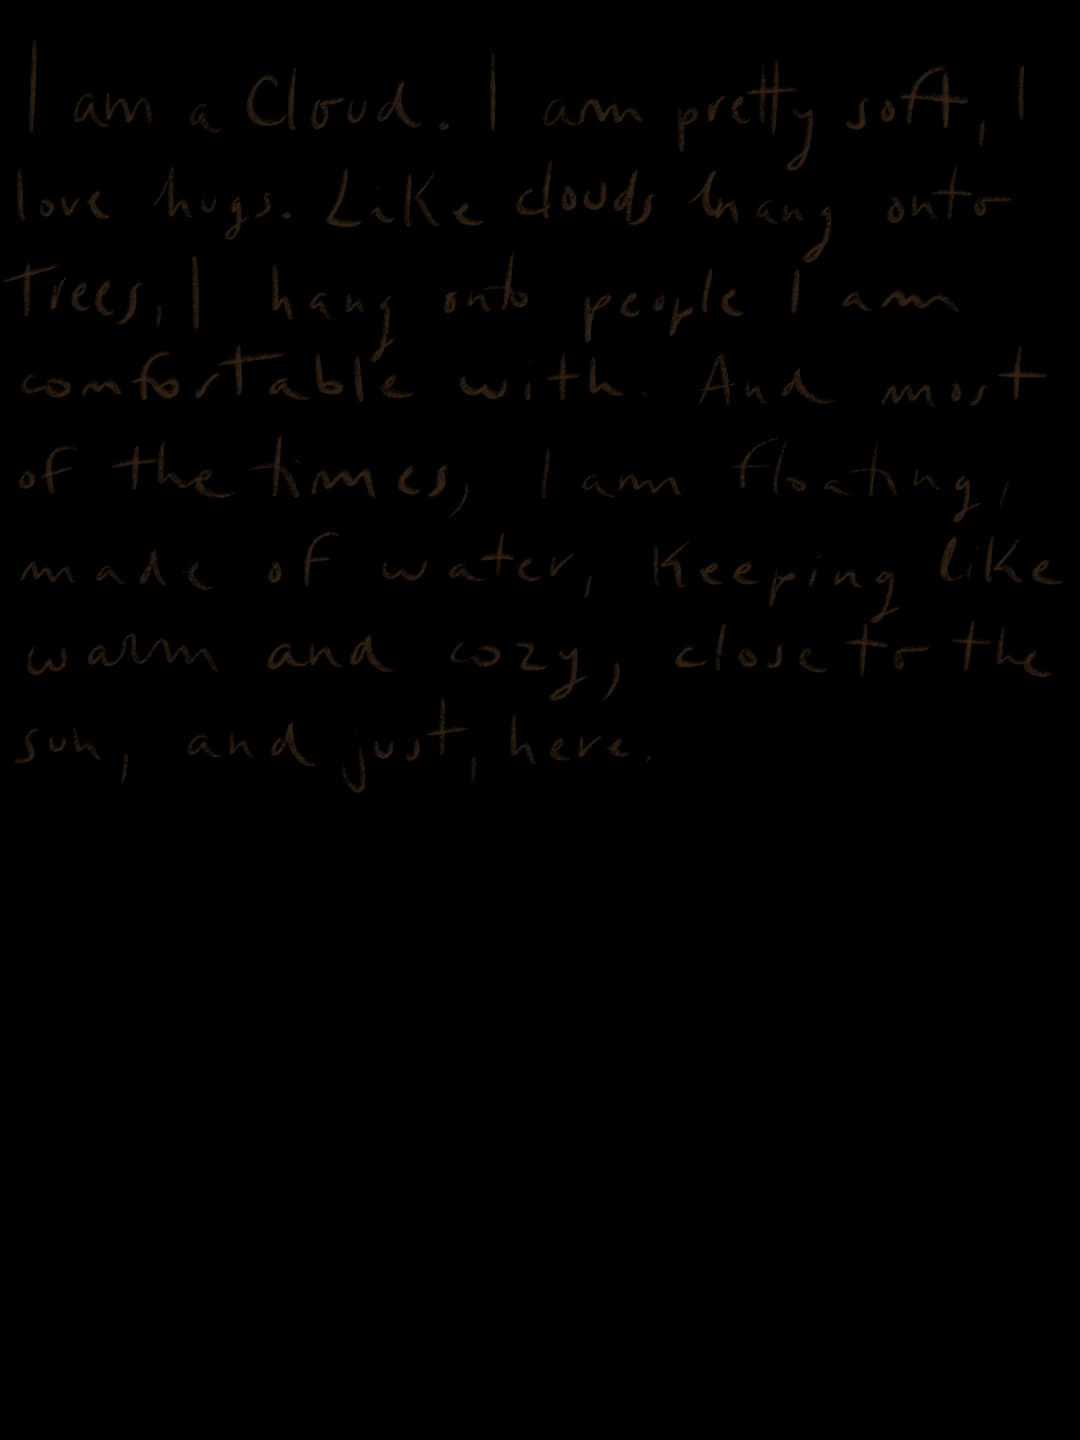 I am a Cloud. I am pretty soft, I
love hugs. Like clouds hang onto
Trees, I hang onto people I am
comfortable with. And most
of the times, I am floating,
made of water, Keeping like
warm and cozy, close to the
sun, and just, here.